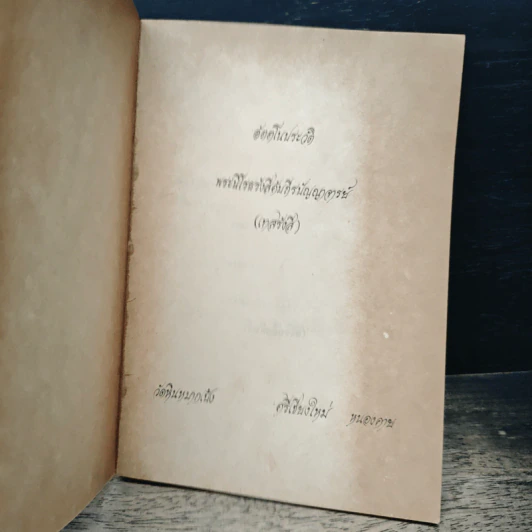 อัตตโนประวัติ
พระนิโรธรังสีคัมภีรปัญญาจารย์
(เทสรังสี)
วัดหินหมากเป้ง ศรีเชียงใหม่ หนองคาย